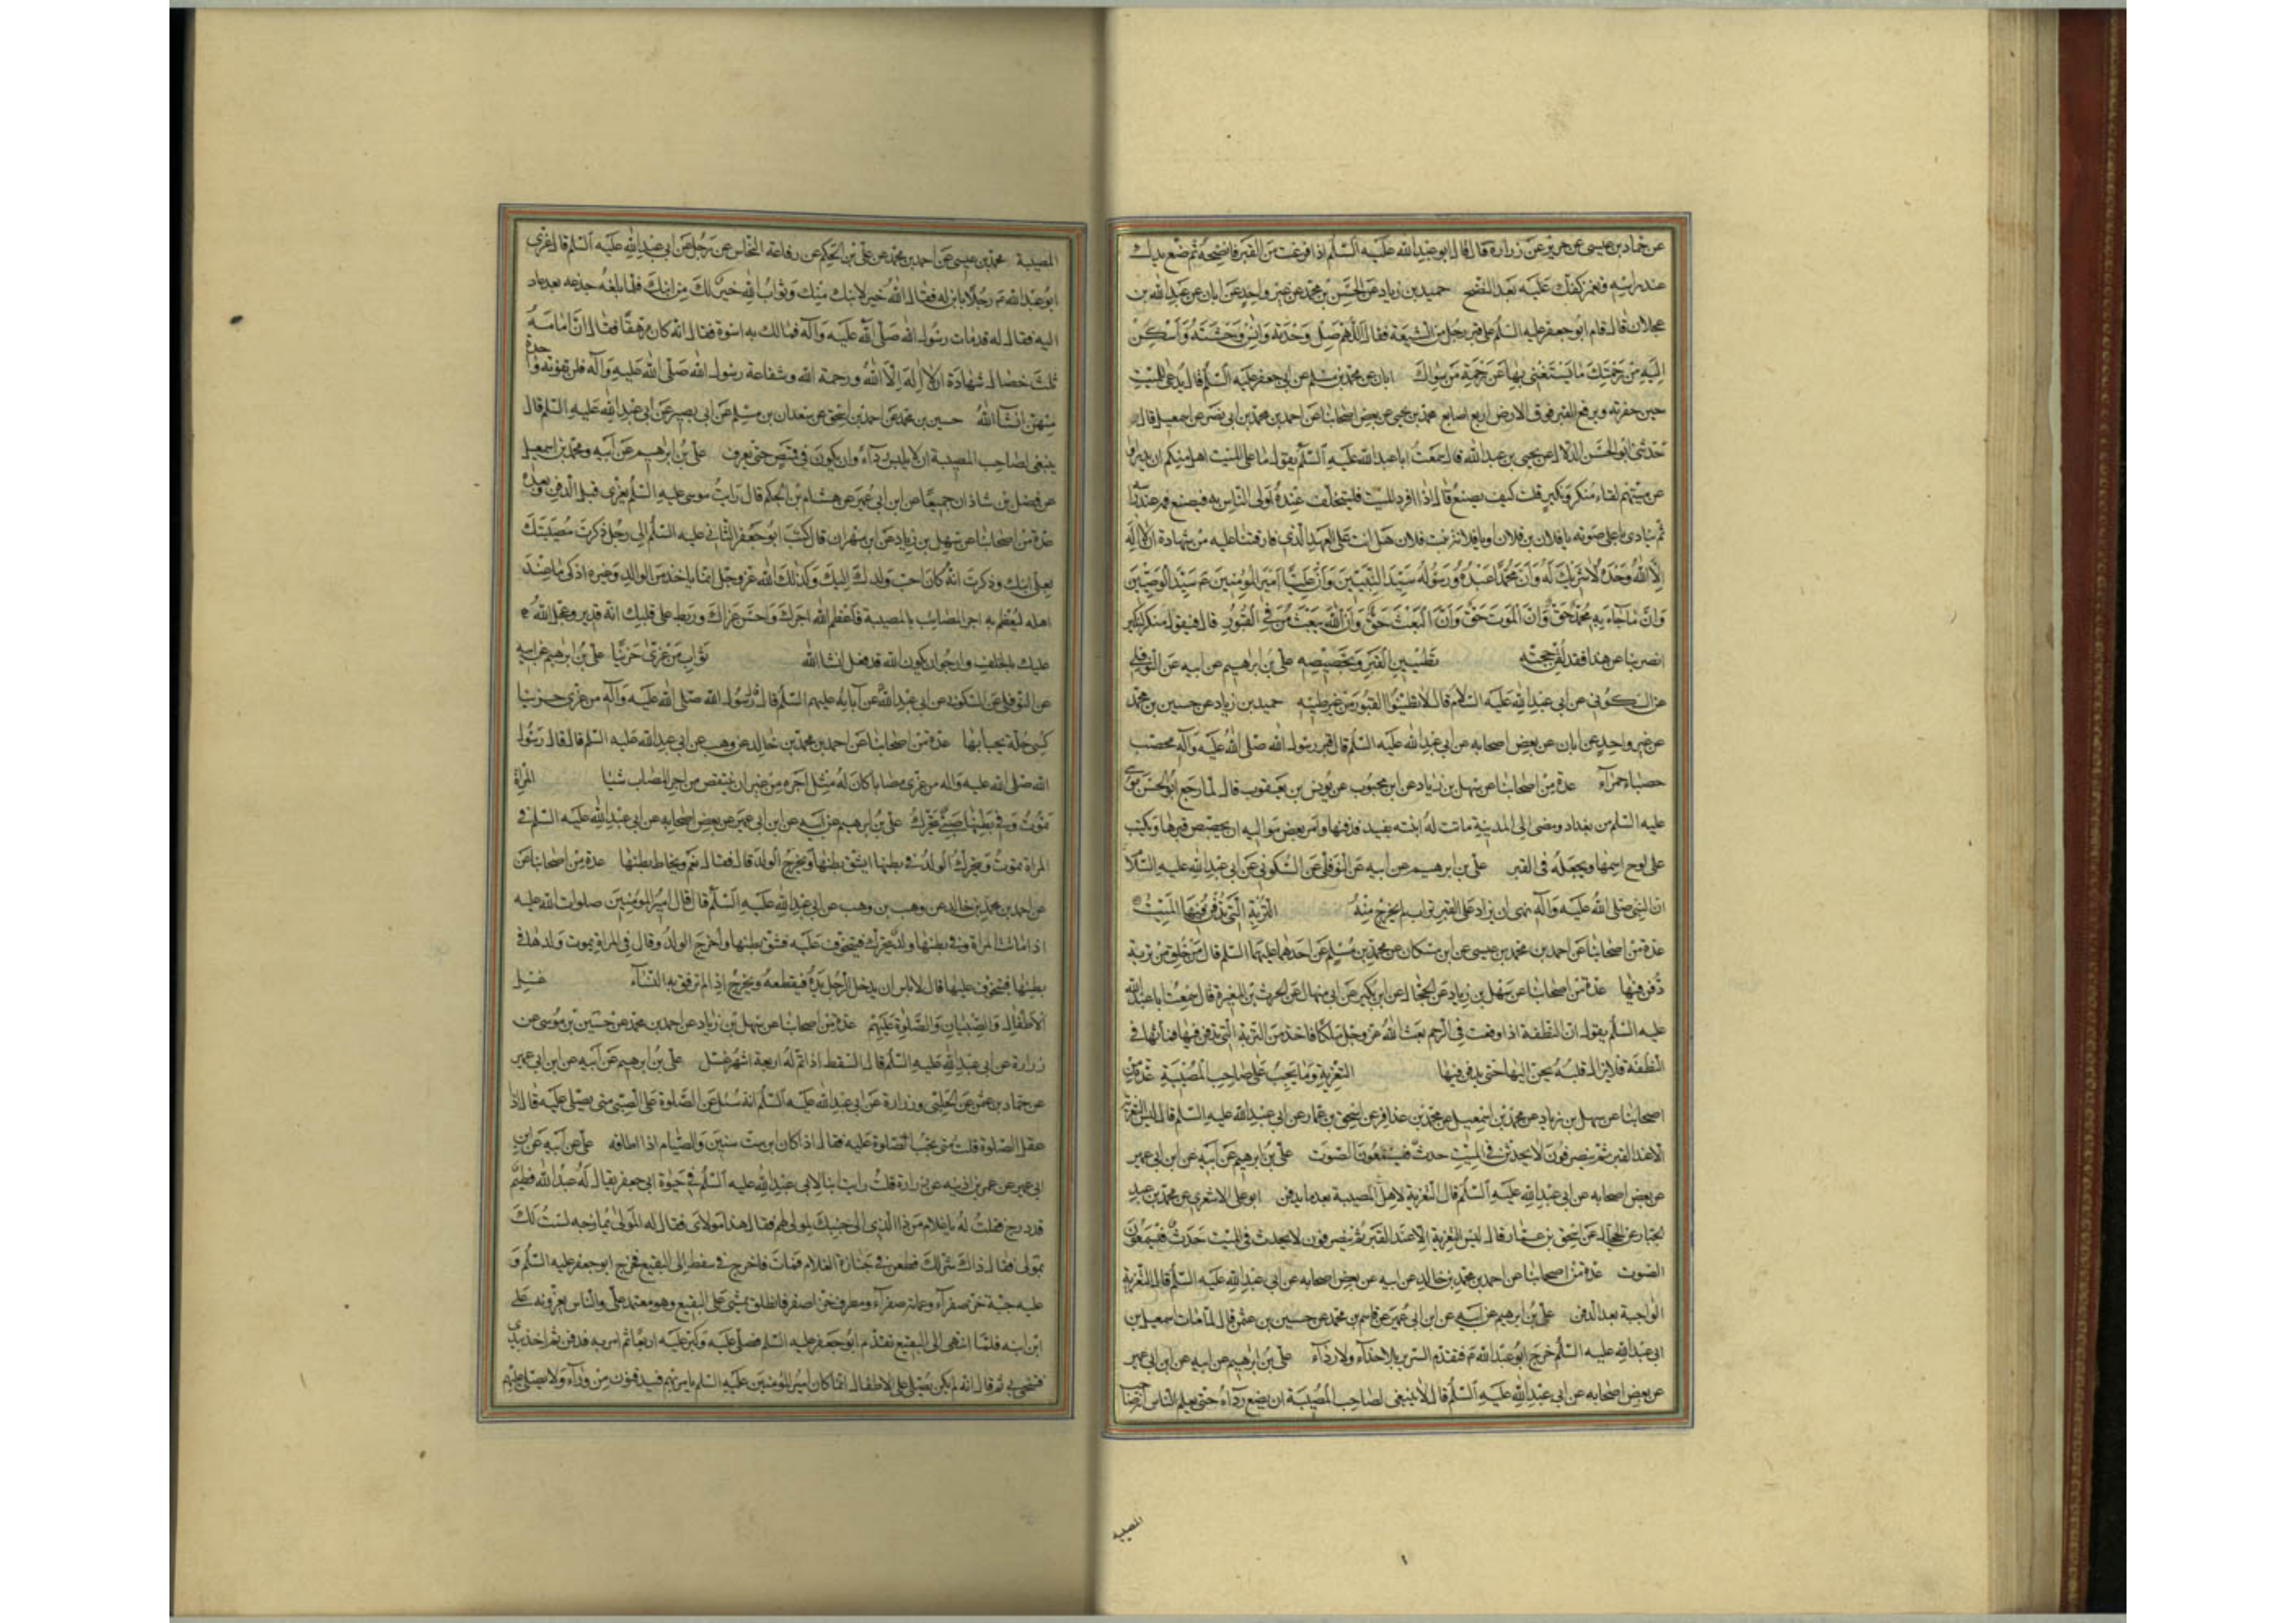 عن حماد بن عيسى عن حريز عن زرارة قال قال ابو عبدالله عليه السلم اذا فرغت من القبر فانضحه ثم ضع يدك
عند راسه وتغمز كفك عليه بعد النضح حميد بن زياد عن الحسن بن محمد عن غير واحد عن ابان عن عبدالله بن
عجلان قال قام ابو جعفر عليه السلم على قبر رجل من الشيعة فقال اللهم صل وحدته وانس وحشته واسكن
اليه من رحمتك ما يستغنى بها عن رحمة من سواك ابان عن محمد بن مسلم عن ابى جعفر عليه السلم قال يدعى للميت
حين يدخل حفرته ويرفع القبر فوق الارض اربع اصابع محمد بن يحيى عن بعض اصحابنا عن احمد بن محمد بن ابى نصر عن اسمعيل قال
حدثنى ابو الحسن الدلال عن يحيى بن عبدالله قال سمعت ابا عبدالله عليه السلم يقول ما على الميت اهل منكم ان يدرؤا
عن ميتهم لقاء منكر ونكير قلت كيف يصنع قال اذا افرد الميت فليتخلف عنده اولى الناس به فيضع فمه عند راسه
ثم ينادى باعلى صوته يا فلان بن فلان او يا فلانة بنت فلان هل انت على العهد الذى فارقتنا عليه من شهادة ان لا اله
الا الله وحده لا شريك له وان محمدا عبده ورسوله سيد النبيين وان عليا امير المؤمنين سيد الوصيين
وان ما جاء به محمد حق وان الموت حق وان البعث حق وان الله يبعث من فى القبور قال فيقول منكر لنكير
انصرف بنا عن هذا فقد لقن حجته تطيين القبر وتجصيصه على بن ابرهيم عن ابيه عن النوفلى
عن السكونى عن ابى عبدالله عليه السلام قال لا تطينوا القبور من غير طينه حميد بن زياد عن حسين بن محمد
عن غير واحد عن ابان عن بعض اصحابه عن ابى عبدالله عليه السلم قال قبر رسول الله صلى الله عليه وآله محصب
حصباء حمراء عدة من اصحابنا عن سهل بن زياد عن ابن محبوب عن يونس بن يعقوب قال لما رجع ابو الحسن موسى
عليه السلم من بغداد ومضى الى المدينة ماتت له ابنته بفيد فدفنها وامر بعض مواليه ان يجصص قبرها ويكتب
على لوح اسمها ويجعله فى القبر على بن ابرهيم عن ابيه عن النوفلى عن السكونى عن ابى عبدالله عليه السلام
ان النبى صلى الله عليه وآله نهى ان يزاد على القبر تراب لم يخرج منه التربة التى يدفن فيها الميت
عدة من اصحابنا عن احمد بن محمد بن عيسى عن ابن مسكان عن محمد بن مسلم عن احدهما عليهما السلم قال من خلق من تربة
دفن فيها عدة من اصحابنا عن سهل بن زياد عن الحجال عن ابن بكير عن ابى منهال عن الحرث بن المغيرة قال سمعت ابا عبدالله
عليه السلم يقول ان النطفة اذا وقعت فى الرحم بعث الله عز وجل ملكا فاخذ من التربة التى يدفن فيها فماثها فى
النطفة فلا يزال قلبه يحن اليها حتى يدفن فيها التعزية وما يجب على صاحب المصيبة عدة من
اصحابنا عن سهل بن زياد عن محمد بن اسمعيل عن محمد بن عذافر عن اسحق بن عمار عن ابى عبدالله عليه السلم قال ليس التعزية
الا عند القبر ثم ينصرفون لا يحدث فى الميت حدث فيسمعون الصوت على بن ابرهيم عن ابيه عن ابن ابى عمير
عن بعض اصحابه عن ابى عبدالله عليه السلم قال التعزية لاهل المصيبة بعد ما يدفن ابو على الاشعرى عن محمد بن عبد
الجبار عن الحجال عن اسحق بن عمار قال ليس التعزية الا عند القبر ثم ينصرفون لا يحدث فى الميت حدث فيسمعون
الصوت عدة من اصحابنا عن احمد بن محمد بن خالد عن ابيه عن بعض اصحابه عن ابى عبدالله عليه السلم قال التعزية
الواجبة بعد الدفن على بن ابرهيم عن ابيه عن ابن ابى عمير عن قاسم بن محمد عن حسين بن عثمن قال لما مات اسمعيل بن
ابى عبدالله عليه السلم خرج ابو عبدالله فتقدم السرير بلا حذاء ولا رداء على بن ابرهيم عن ابيه عن ابن ابى عمير
عن بعض اصحابه عن ابى عبدالله عليه السلم قال لا ينبغى لصاحب المصيبة ان يضع رداءه حتى يعلم الناس
المصيبة
١
المصيبة محمد بن عيسى عن احمد بن محمد عن على بن الحكم عن رفاعة النخاس عن رجل عن ابى عبدالله عليه السلم قال عزى
ابو عبدالله رجلا بابن له فقال الله خير لابنك منك وثواب الله خير لك من ابنك فلما بلغه جزعه بعد عاد
اليه فقال له قد مات رسول الله صلى الله عليه وآله فما لك به اسوة فقال انه كان مرهقا فقال ان امامه
ثلث خصال شهادة ان لا اله الا الله ورحمة الله وشفاعة رسول الله صلى الله عليه وآله فلن تفوته واحدة
منهن انشاء الله حسين بن محمد عن احمد بن اسحق عن سعدان بن مسلم عن ابى بصير عن ابى عبدالله عليه السلم قال
ينبغى لصاحب المصيبة ان لا يلبس رداء وان يكون فى قميص حتى يعرف على بن ابرهيم عن ابيه ومحمد بن اسمعيل
عن فضل بن شاذان جميعا عن ابن ابى عمير عن هشام بن الحكم قال رايت موسى عليه السلم يعزى قبل الدفن وبعده
عدة من اصحابنا عن سهل بن زياد عن ابن مهران قال كتب ابو جعفر الثانى عليه السلم الى رجل ذكرت مصيبتك
بعلى ابنك وذكرت انه كان احب ولدك اليك وكذلك الله عز وجل انما ياخذ من الوالد وغيره ازكى ما عند
اهله ليعظم به اجر المصاب بالمصيبة فاعظم الله اجرك واحسن عزاك وربط على قلبك انه قدير وعجل الله
عليك بالخلف وارجو ان يكون الله قد فعل انشا الله ثواب من عزى حزينا على بن ابرهيم عن ابيه
عن النوفلى عن السكونى عن ابى عبدالله عن آبائه عليهم السلم قال رسول الله صلى الله عليه وآله من عزى حزينا
كسى حلة يحبا بها عدة من اصحابنا عن احمد بن محمد بن خالد عن وهب عن ابى عبدالله عليه السلم قال قال رسول
الله صلى الله عليه واله من عزى مصابا كان له مثل اجره من غير ان ينتقص من اجر المصاب شيئا المراة
تموت وفى بطنها صبى يتحرك على بن ابرهيم عن ابيه عن ابن ابى عمير عن بعض اصحابه عن ابى عبدالله عليه السلم فى
المراة تموت ويتحرك الولد فى بطنها ايشق بطنها ويخرج الولد قال فقال نعم ويخاط بطنها عدة من اصحابنا عن
احمد بن محمد بن خالد عن وهب بن وهب عن ابى عبدالله عليه السلم قال قال امير المؤمنين صلوات الله عليه
اذا ماتت المراة وفى بطنها ولد يتحرك فيتخوف عليه فشق بطنها واخرج الولد وقال فى المراة يموت ولدها فى
بطنها فيتخوف عليها قال لا باس ان يدخل الرجل يده فيقطعه ويخرجه اذا لم ترفق به النساء غسل
الاطفال والصبيان والصلوة عليهم عدة من اصحابنا عن سهل بن زياد عن احمد بن محمد عن حسين بن موسى عن
زرارة عن ابى عبدالله عليه السلم قال السقط اذا تم له اربعة اشهر غسل على بن ابرهيم عن ابيه عن ابن ابى عمير
عن حماد بن عثمن عن الحلبى وزرارة عن ابى عبدالله عليه السلم انه سئل عن الصلوة على الصبى متى يصلى عليه قال اذا
عقل الصلوة قلت متى يجب الصلوة عليه فقال اذا كان ابن ست سنين والصيام اذا اطاقه على عن ابيه عن ابن
ابى عمير عن عمر بن اذينه عن زرارة قلت رايت ابنا لابى عبدالله عليه السلم فى حيوة ابى جعفر يقال له عبدالله فطيم
قد درج فقلت له يا غلام من ذا الذى الى جنبك لمولى لهم فقال هذا مولاى فقال له المولى يمازحه لست لك
بمولى فقال ذلك شر لك فطعن فى جنازة الغلام فمات فاخرج فى سفط الى البقيع فخرج ابو جعفر عليه السلم و
عليه جبة خز صفراء وعمامة صفراء ومطرف خز اصفر فانطلق يمشى الى البقيع وهو معتمد على والناس يعزونه على
ابن ابنه فلما انتهى الى البقيع تقدم ابو جعفر عليه السلم فصلى عليه وكبر عليه اربعا ثم امر به فدفن ثم اخذ بيدى
فتنحى بى ثم قال انه لم يكن يصلى على الاطفال انما كان امير المؤمنين عليه السلم يامر بهم فيدفنون من وراء ولا يصلى عليهم